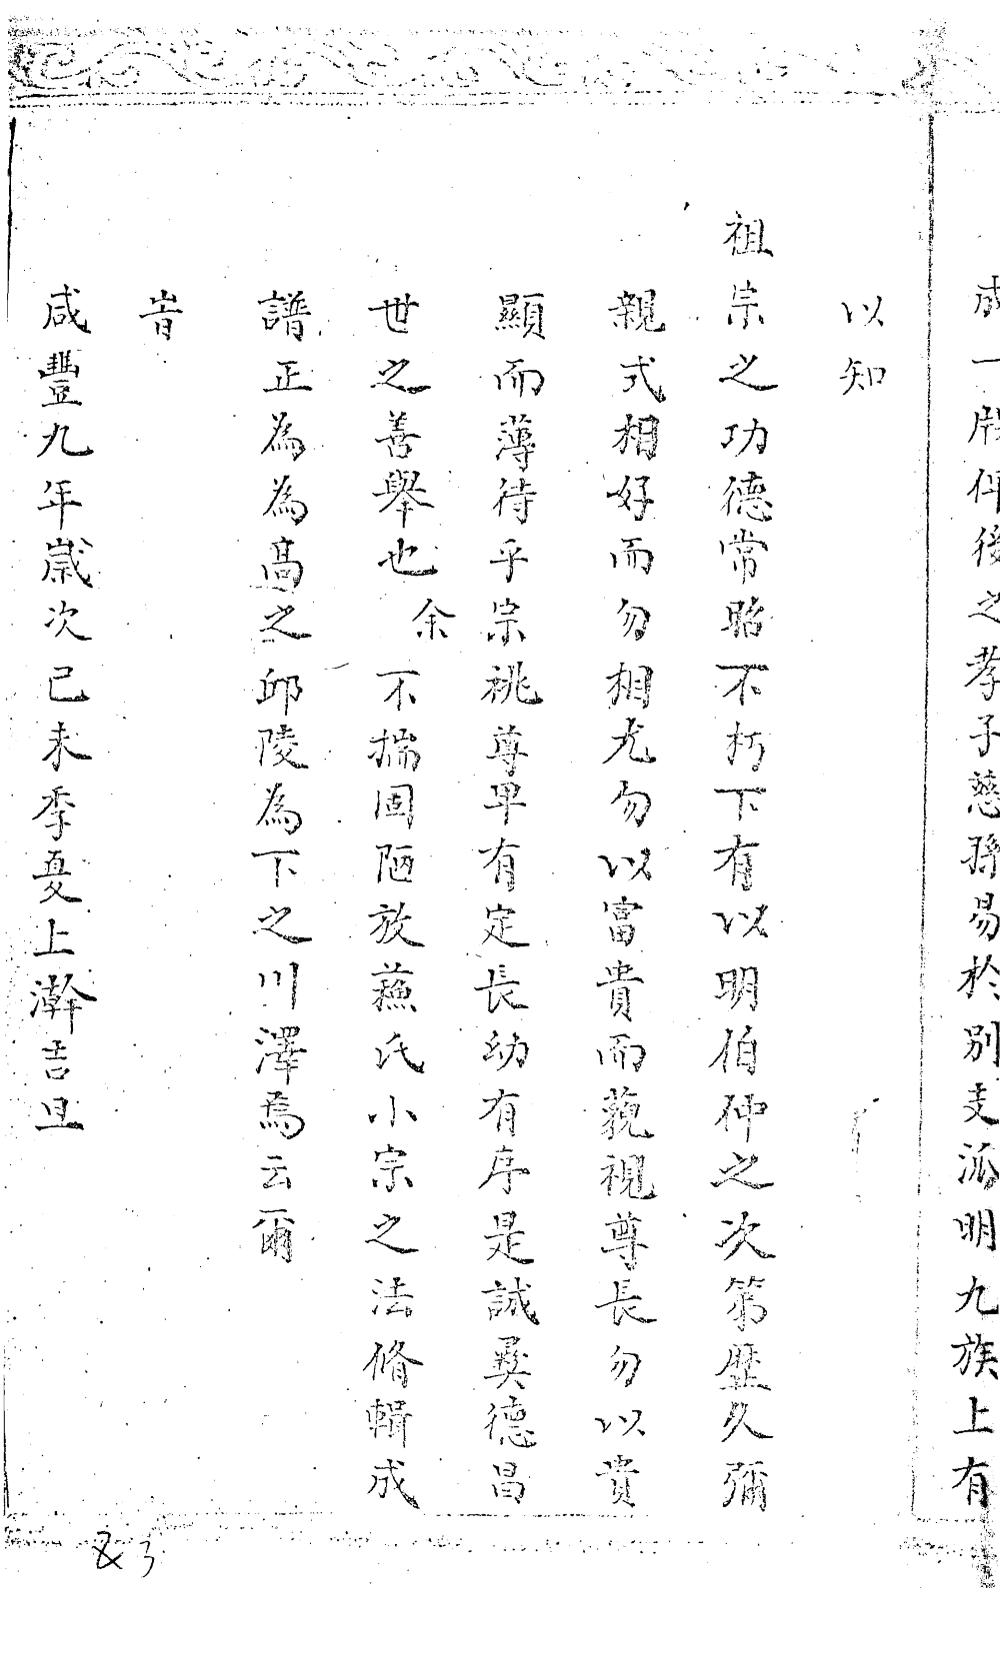 成一牒俾後之孝子慈孫易於別支派明九族上有
以知
祖宗之功德常昭不朽下有以明伯仲之次第歷久彌
親式相好而勿相尤勿以富貴而藐視尊長勿以貴
顯而薄待乎宗祧尊卑有定長幼有序是誠彝德昌
世之善舉也余不揣固陋放蘓氏小宗之法脩輯成
譜正為為高之邱陵為下之川澤焉云爾
旹
咸豐九年歲次己未季夏上澣吉旦
83